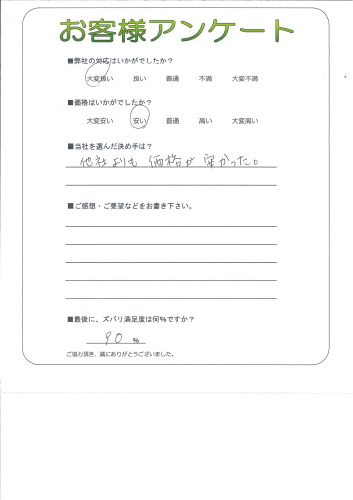 お客様アンケート
■弊社の対応はいかがでしたか？
大変良い 良い 普通 不満 大変不満
■価格はいかがでしたか？
大変安い 安い 普通 高い 大変高い
■当社を選んだ決め手は？
他社よりも 価格が 安かった。
■ご感想・ご要望などをお書き下さい。
■最後に、ズバリ満足度は何％ですか？
90 %
ご協力頂き、誠にありがとうございました。